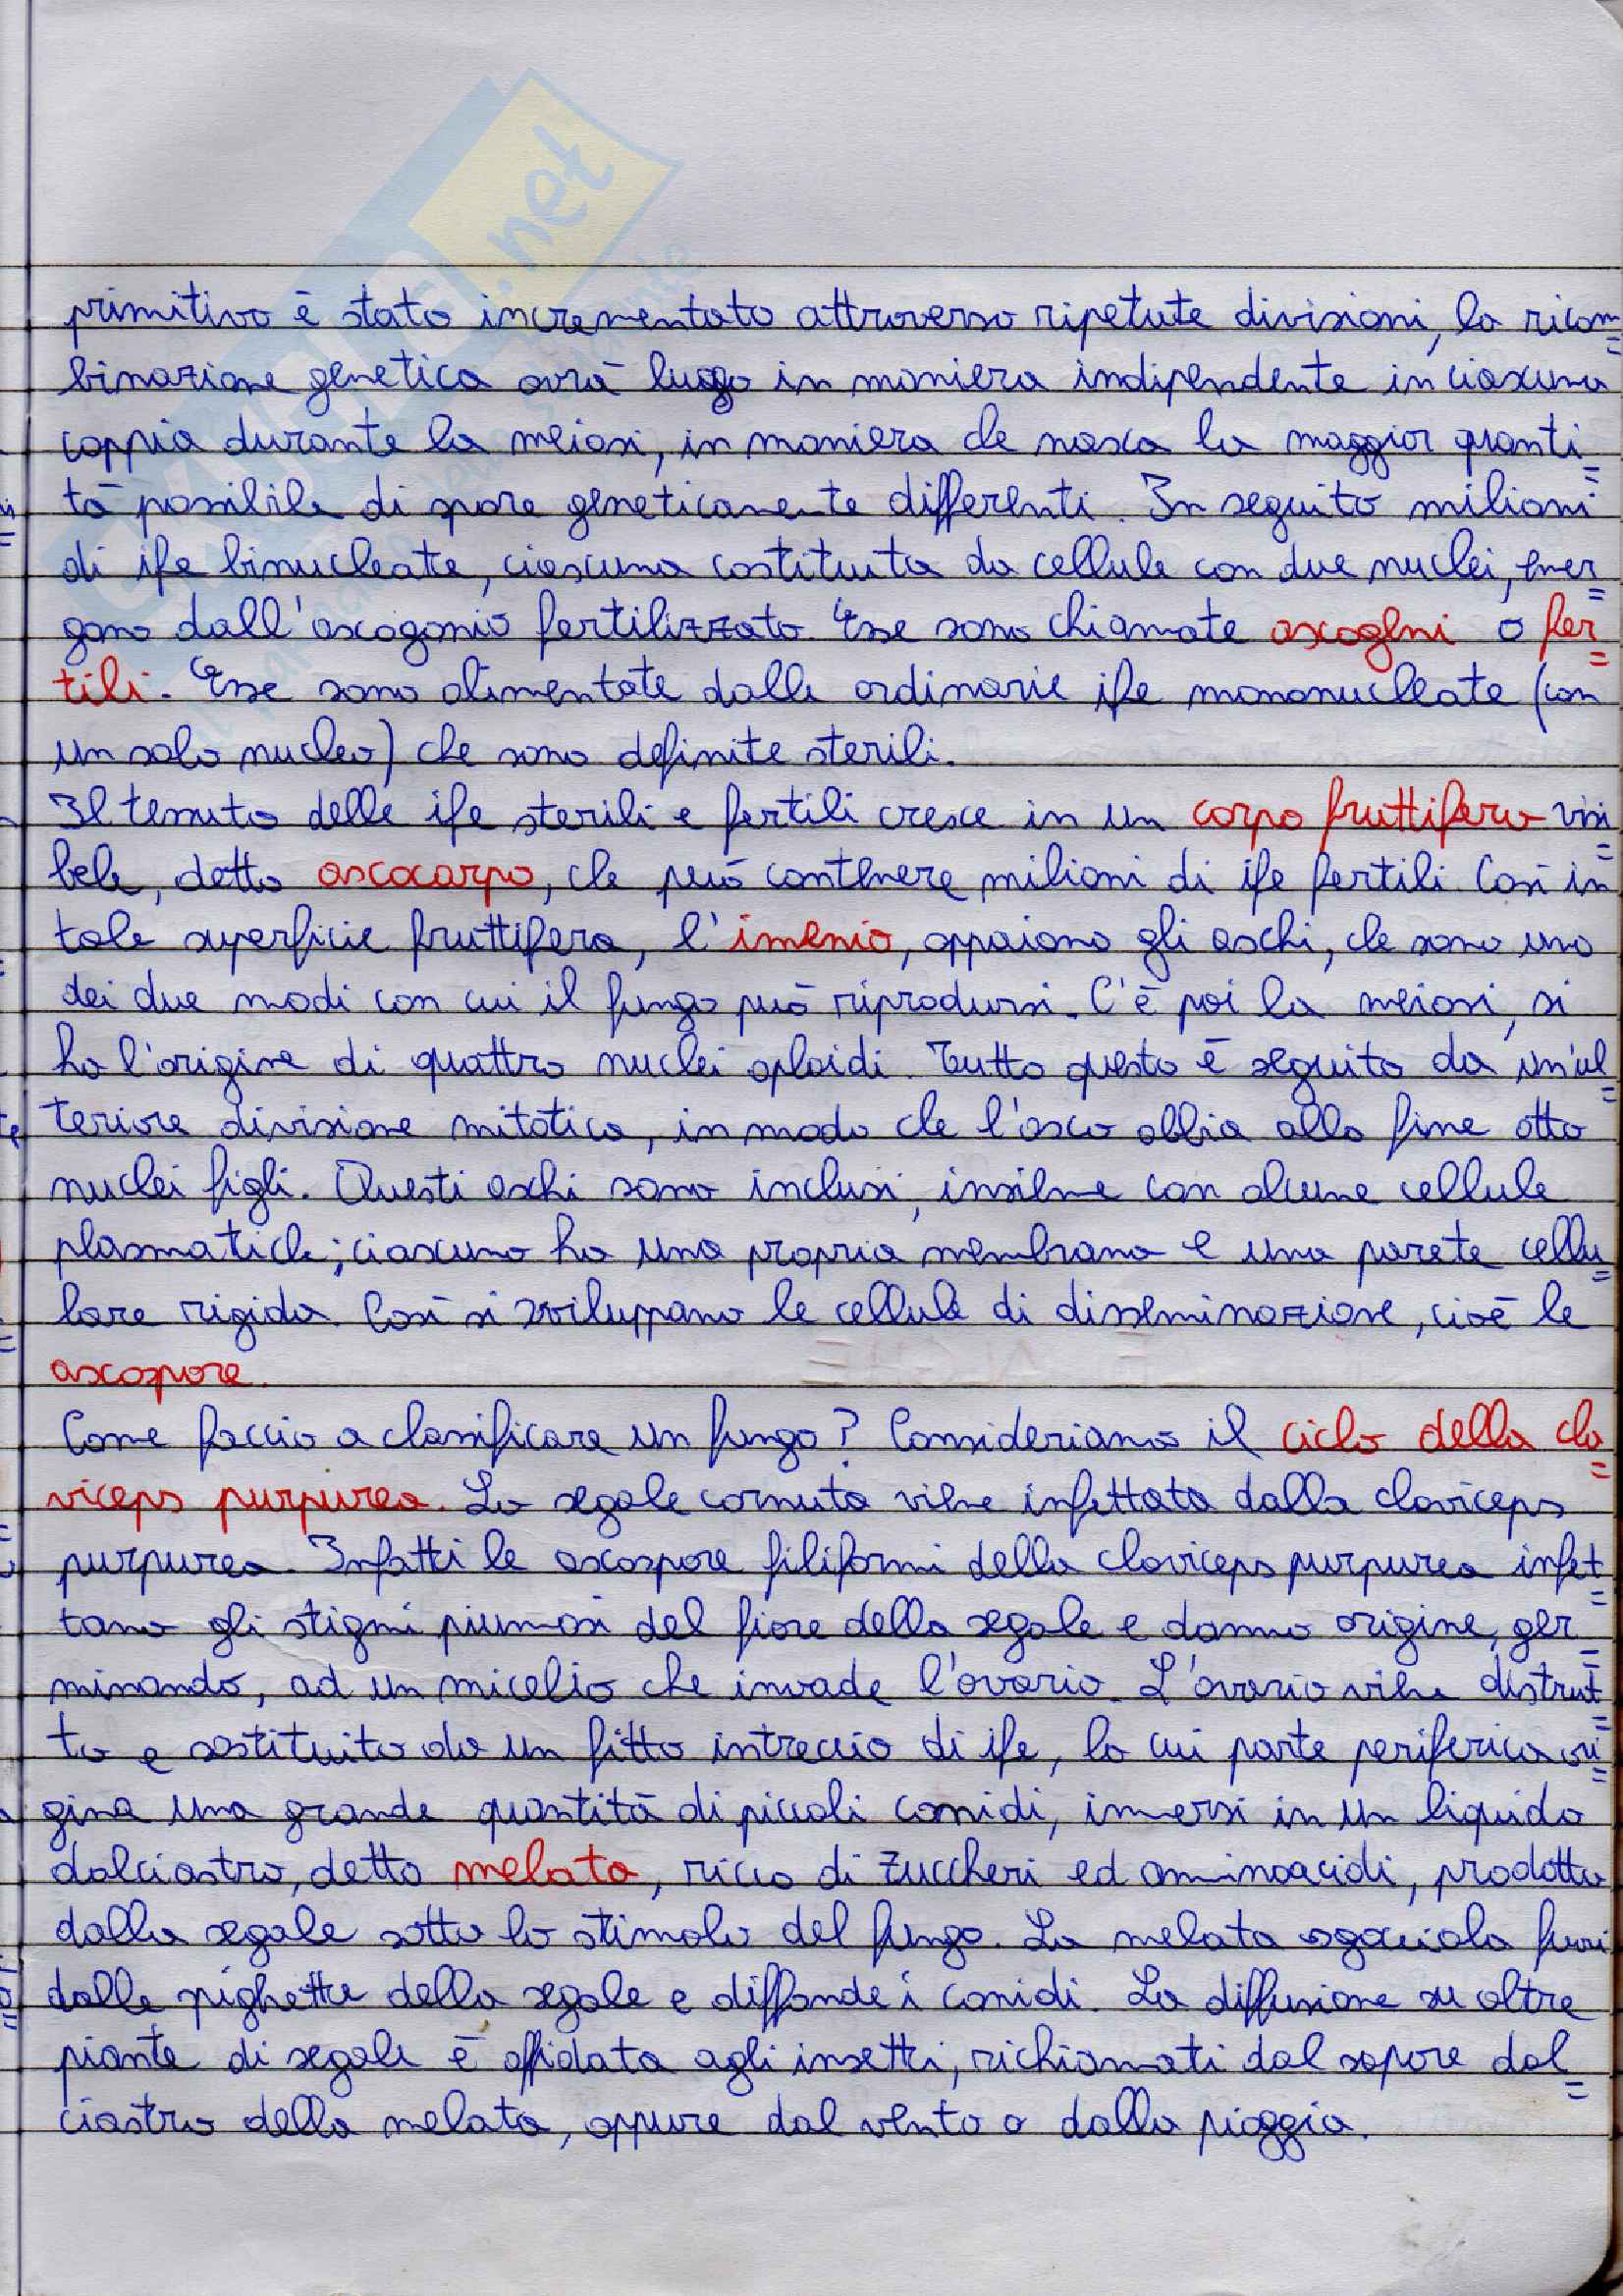 primitivo è stato incrementato attraverso ripetute divisioni, la ricom=
binazione genetica avrà luogo in maniera indipendente in ciascuna
coppia durante la meiosi, in maniera che nasca la maggior quanti=
tà possibile di spore geneticamente differenti. In seguito milioni
di ife binucleate, ciascuna costituita da cellule con due nuclei, emer=
gono dall'ascogonio fertilizzato. Esse sono chiamate ascogeni o fer=
tili. Esse sono alimentate dalle ordinarie ife mononucleate (con
un solo nucleo) che sono definite sterili.
Il tessuto delle ife sterili e fertili cresce in un corpo fruttifero visi=
bele, detto ascocarpo, che può contenere milioni di ife fertili. Così in
tale superficie fruttifera, l'imenio, appaiono gli aschi, che sono uno
dei due modi con cui il fungo può riprodursi. C'è poi la meiosi, si
ha l'origine di quattro nuclei aploidi. Tutto questo è seguito da un'ul=
teriore divisione mitotica, in modo che l'asco abbia alla fine otto
nuclei figli. Questi aschi sono inclusi, insieme con alcune cellule
plasmatiche; ciascuno ha una propria membrana e una parete cellu=
lare rigida. Così si sviluppano le cellule di disseminazione, cioè le
ascospore.
Come faccio a classificare un fungo? Consideriamo il ciclo della cla=
viceps purpurea. La segale cornuta viene infettata dalla claviceps
purpurea. Infatti le ascospore filiformi della claviceps purpurea infet=
tano gli stigmi piumosi del fiore della segale e danno origine, ger=
minando, ad un micelio che invade l'ovario. L'ovario viene distrut=
to e sostituito da un fitto intreccio di ife, la cui parte periferica ori=
gina una grande quantità di piccoli conidi, immersi in un liquido
dolciastro, detto melata, ricco di zuccheri ed aminoacidi, prodotto
dalla segale sotto lo stimolo del fungo. La melata sgocciola fuori
dalle spighette della segale e diffonde i conidi. La diffusione su altre
piante di segale è affidata agli insetti, richiamati dal sapore dol=
ciastro della melata, oppure dal vento o dalla pioggia.